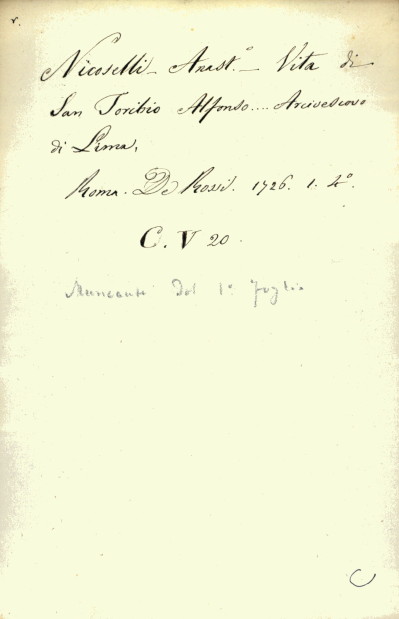 r.
Nicoselli - Anast.º - Vita di
San Toribio Alfonso.... Arcivescovo
di Lima,
Roma. De Rossi. 1726. 1. 4º.
C. V 20.
Mancante del 1º foglio
C